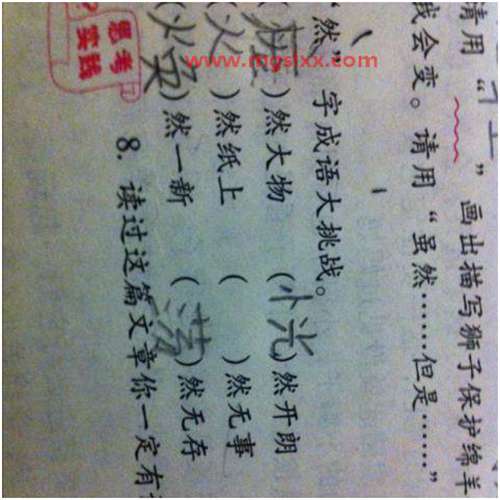 请用“ ”画出描写狮子保护绵羊
我会变。请用“虽然……但是……”
“然”字成语大挑战。
(庞)然大物 (恍)然开朗
(火 )然纸上 ( )然无事
(焕)然一新 (荡)然无存
8. 读过这篇文章你一定有
思考
实践